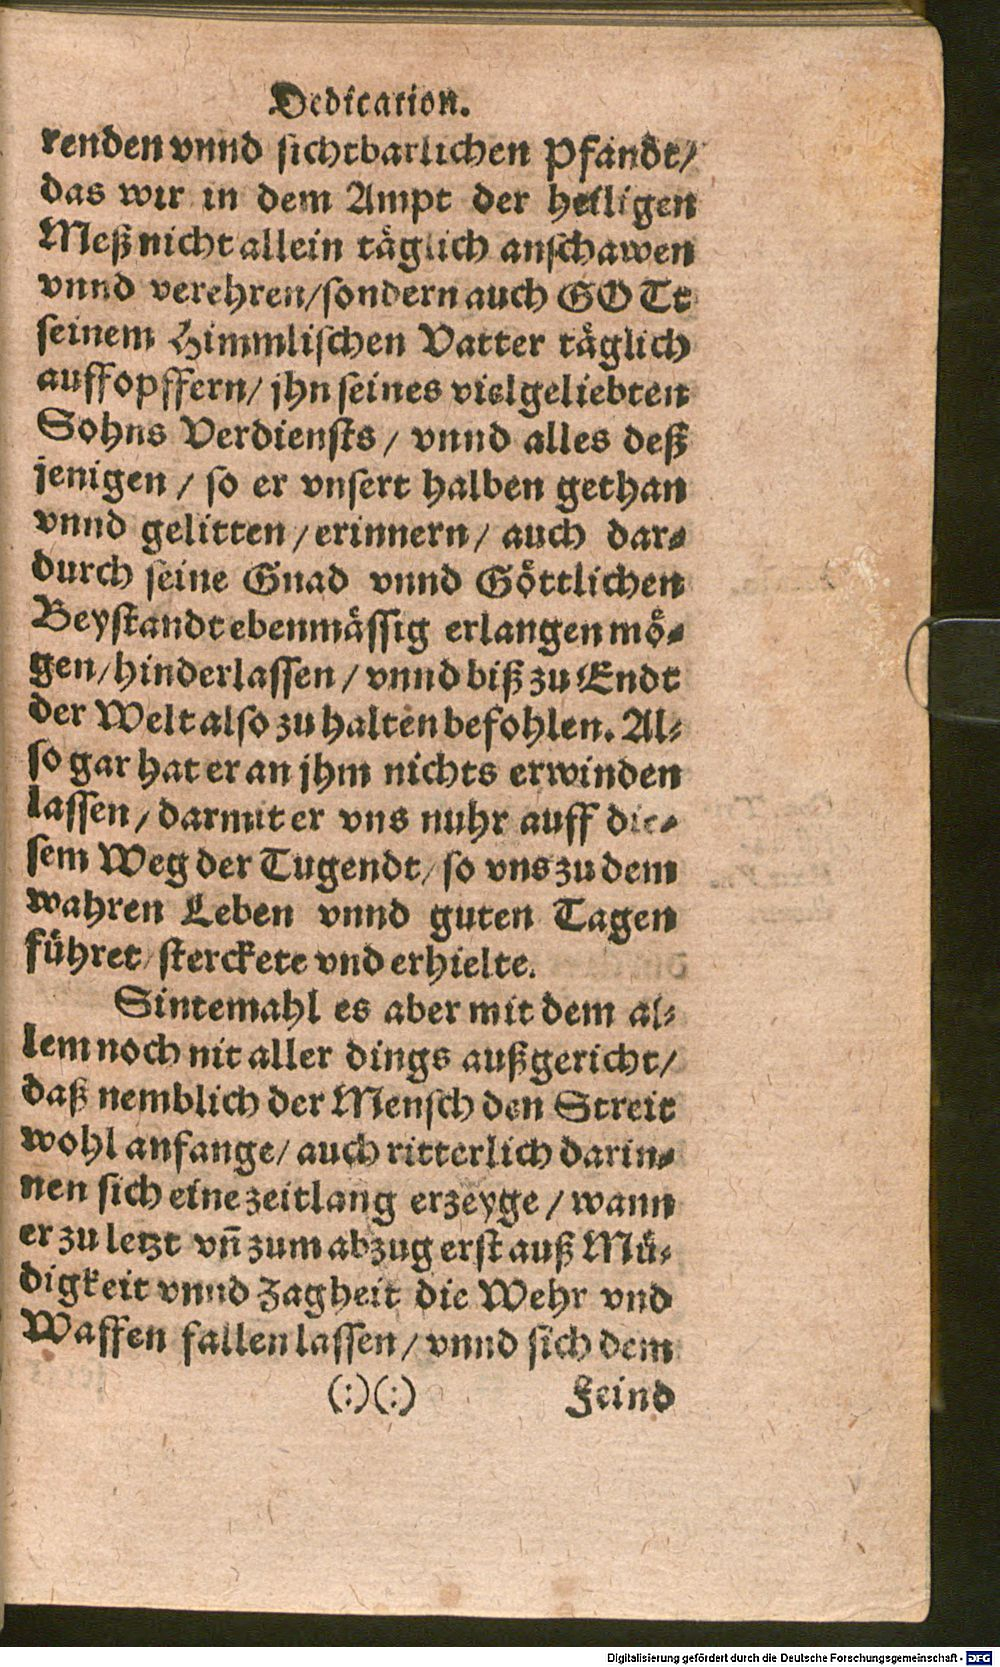 Dedication.
renden vnnd sichtbarlichen Pfandt/
das wir in dem Ampt der heiligen
Meß nicht allein täglich anschawen
vnnd verehren/sondern auch GOTt
seinem Himmlischen Vatter täglich
auffopffern/ jhn seines vielgeliebten
Sohns Verdiensts / vnnd alles deß
jenigen / so er vnsert halben gethan
vnnd gelitten /erinnern/ auch dar-
durch seine Gnad vnnd Göttlichen
Beystandt ebenmässig erlangen mö-
gen/hinderlassen / vnnd biß zu Endt
der Welt also zu halten befohlen. Al-
so gar hat er an jhm nichts erwinden
lassen / darmit er vns nuhr auff die-
sem Weg der Tugendt/ so vns zu dem
wahren Leben vnnd guten Tagen
führet/ sterckete vnd erhielte.
Sintemahl es aber mit dem al-
lem noch nit aller dings außgericht/
daß nemblich der Mensch den Streit
wohl anfange/ auch ritterlich darin-
nen sich eine zeitlang erzeyge / wann
er zu letzt vñ zum abzug erst auß Mü-
digkeit vnnd Zagheit die Wehr vnd
Waffen fallen lassen / vnnd sich dem
(:)(:) Feind
Digitalisierung gefördert durch die Deutsche Forschungsgemeinschaft - DFG